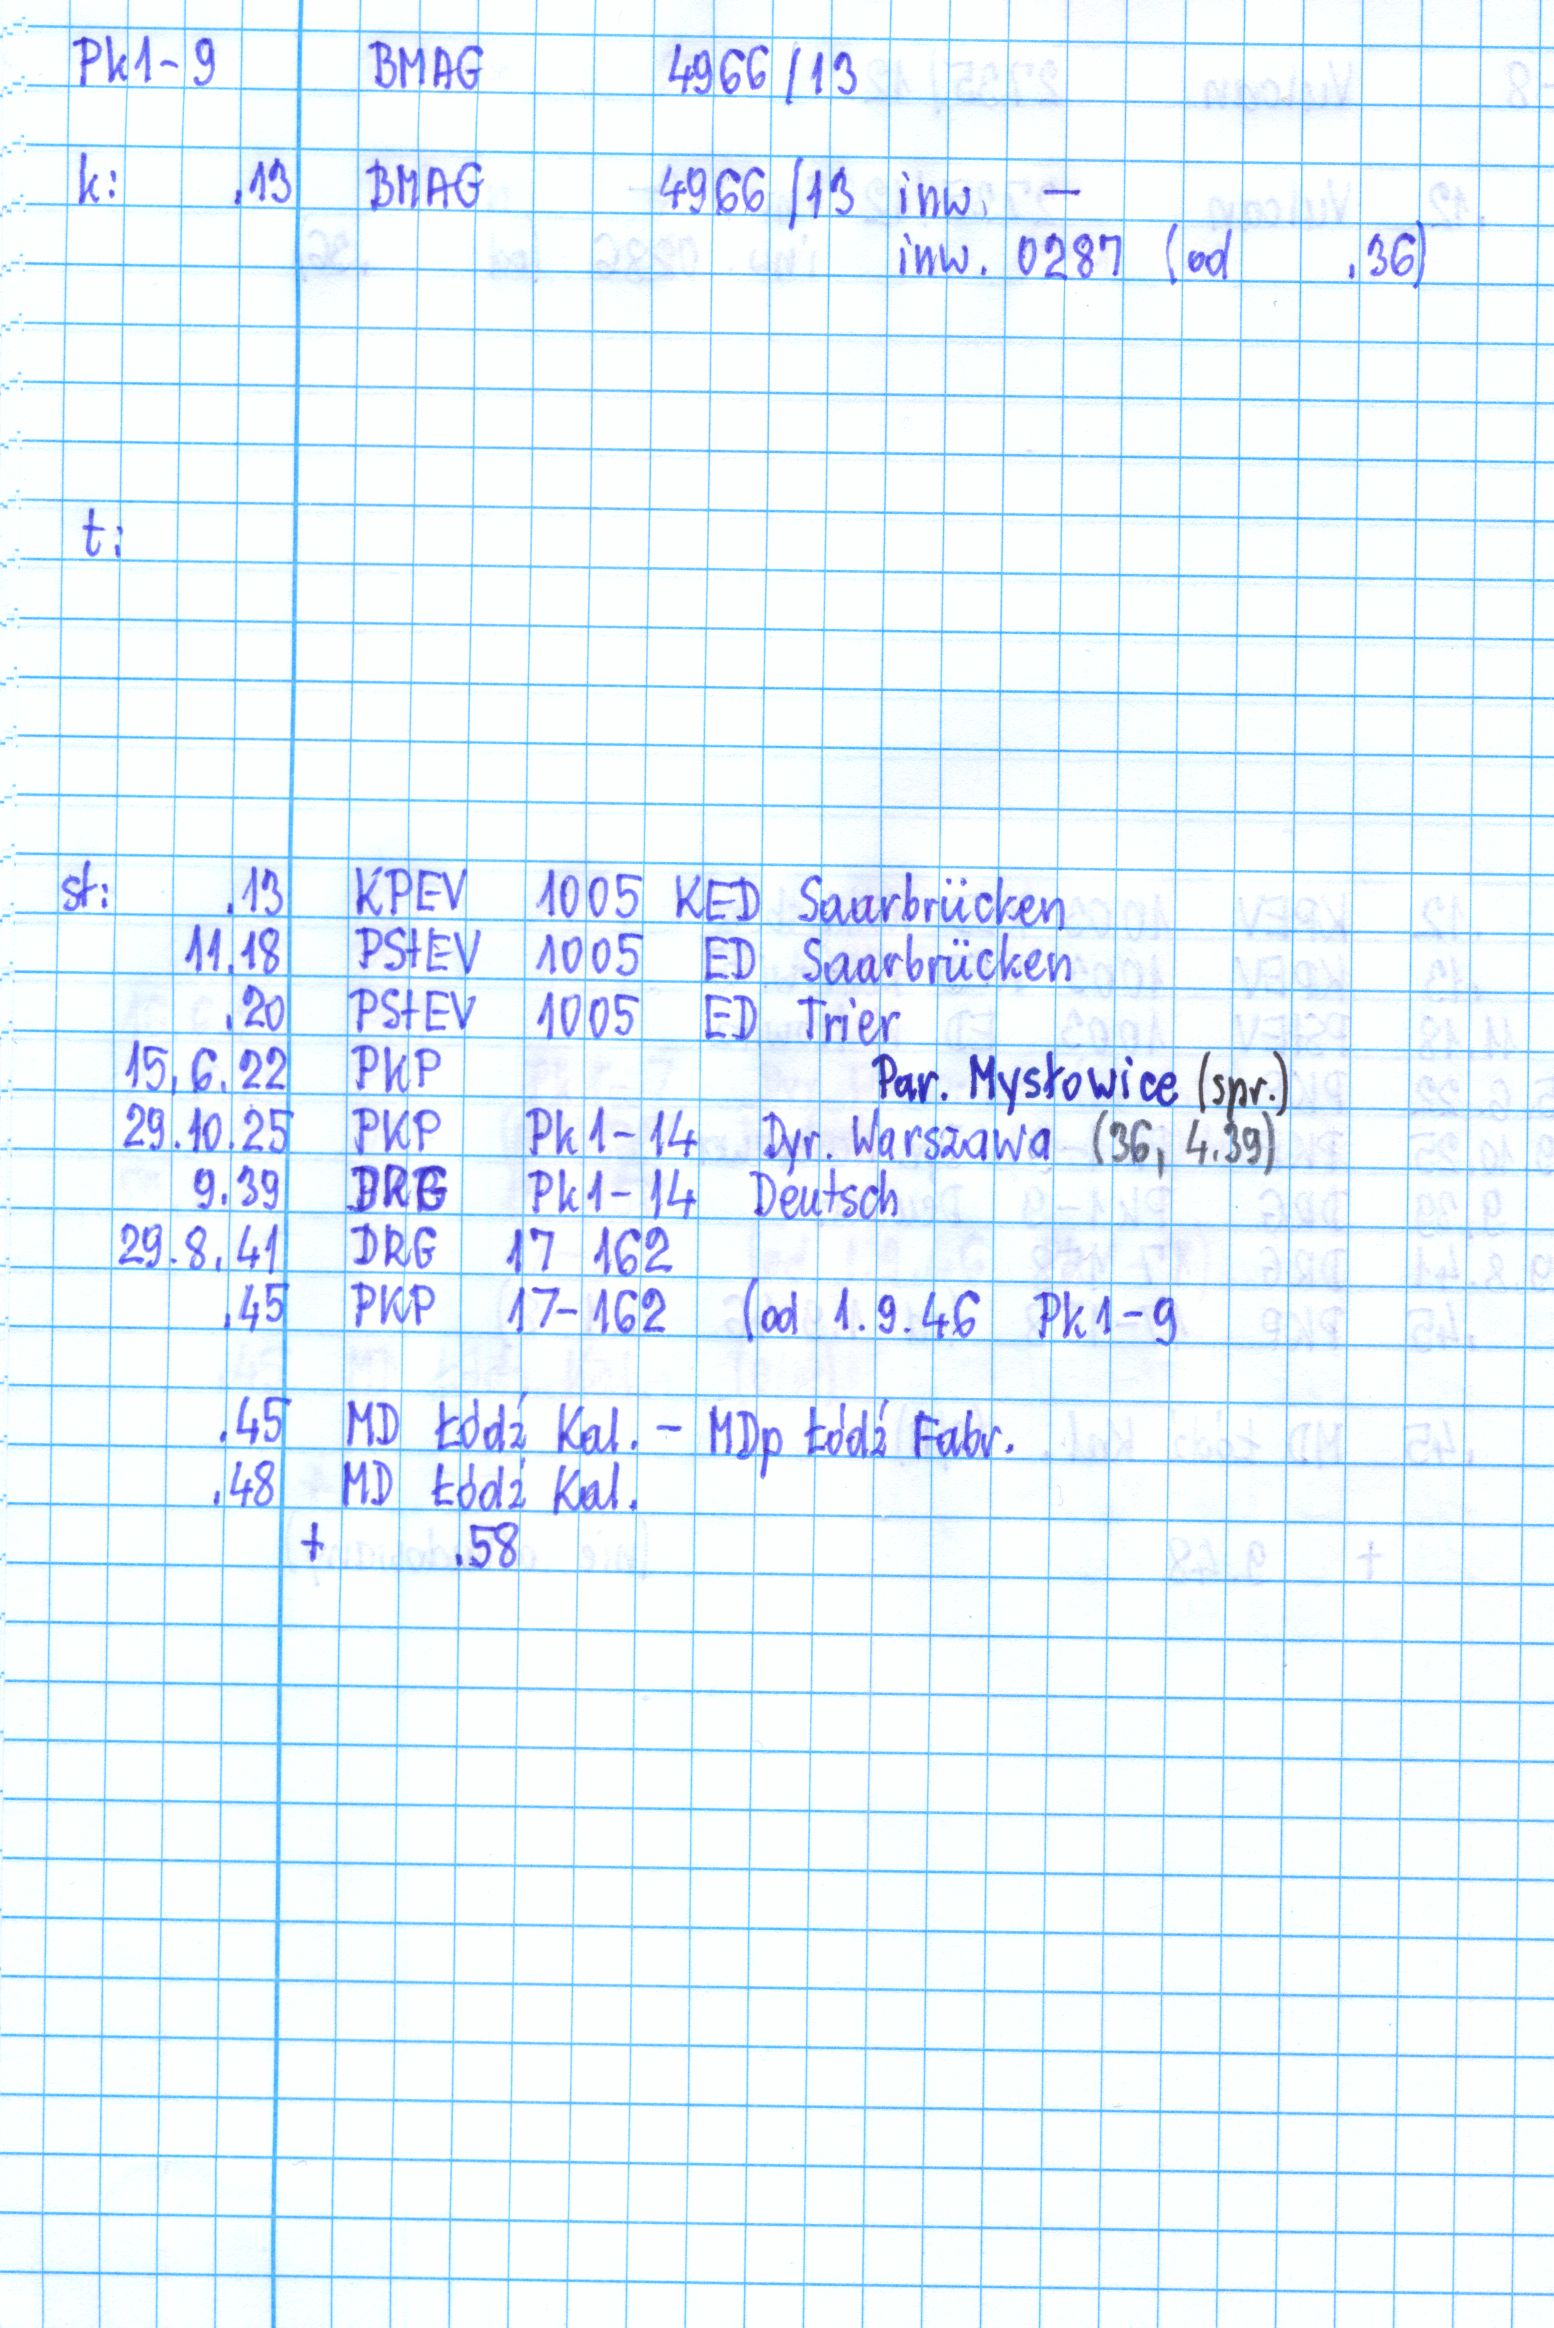 Pk1-9 BMAG 4966/13
k: .13 BMAG 4966/13 inw. —
inw. 0287 (od .36)
t:
st: .13 KPEV 1005 KED Saarbrücken
11.18 PStEV 1005 ED Saarbrücken
.20 PStEV 1005 ED Trier
15.6.22 PKP Par. Mysłowice (spr.)
29.10.25 PKP Pk1-14 Dyr. Warszawa (36, 4.39)
9.39 DRG Pk1-14 Deutsch
29.8.41 DRG 17 162
.45 PKP 17-162 (od 1.9.46 Pk1-9
.45 MD Łódź Kal. - MDp Łódź Fabr.
.48 MD Łódź Kal.
+ .58